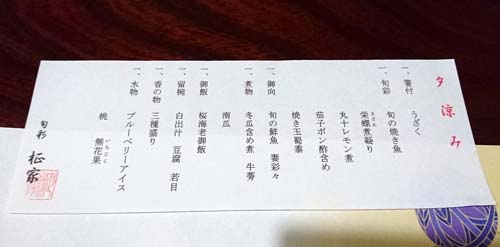 夕涼み
一、箸付
うざく
一、旬彩
旬の焼き魚
栄螺煮凝り
さざえ
丸十レモン煮
茄子ポン酢含め
焼き玉蜀黍
一、御向
旬の鮮魚 妻彩々
一、煮物
冬瓜含め煮 牛蒡
南瓜
一、御飯
桜海老御飯
一、留椀
白出汁 豆腐 若目
一、香の物
三種盛り
一、水物
ブルーベリーアイス
桃 無花果
いちじく
旬彩